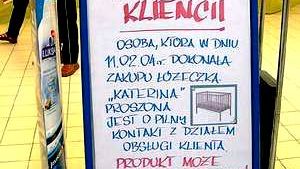 KLIENCI!
OSOBA, KTÓRA W DNIU
11.02.04r. DOKONAŁA
ZAKUPU ŁÓŻECZKA
„KATERINA"
PROSZONA
JEST O PILNY
KONTAKT Z DZIAŁEM
OBSŁUGI KLIENTA.
PRODUKT MOŻE